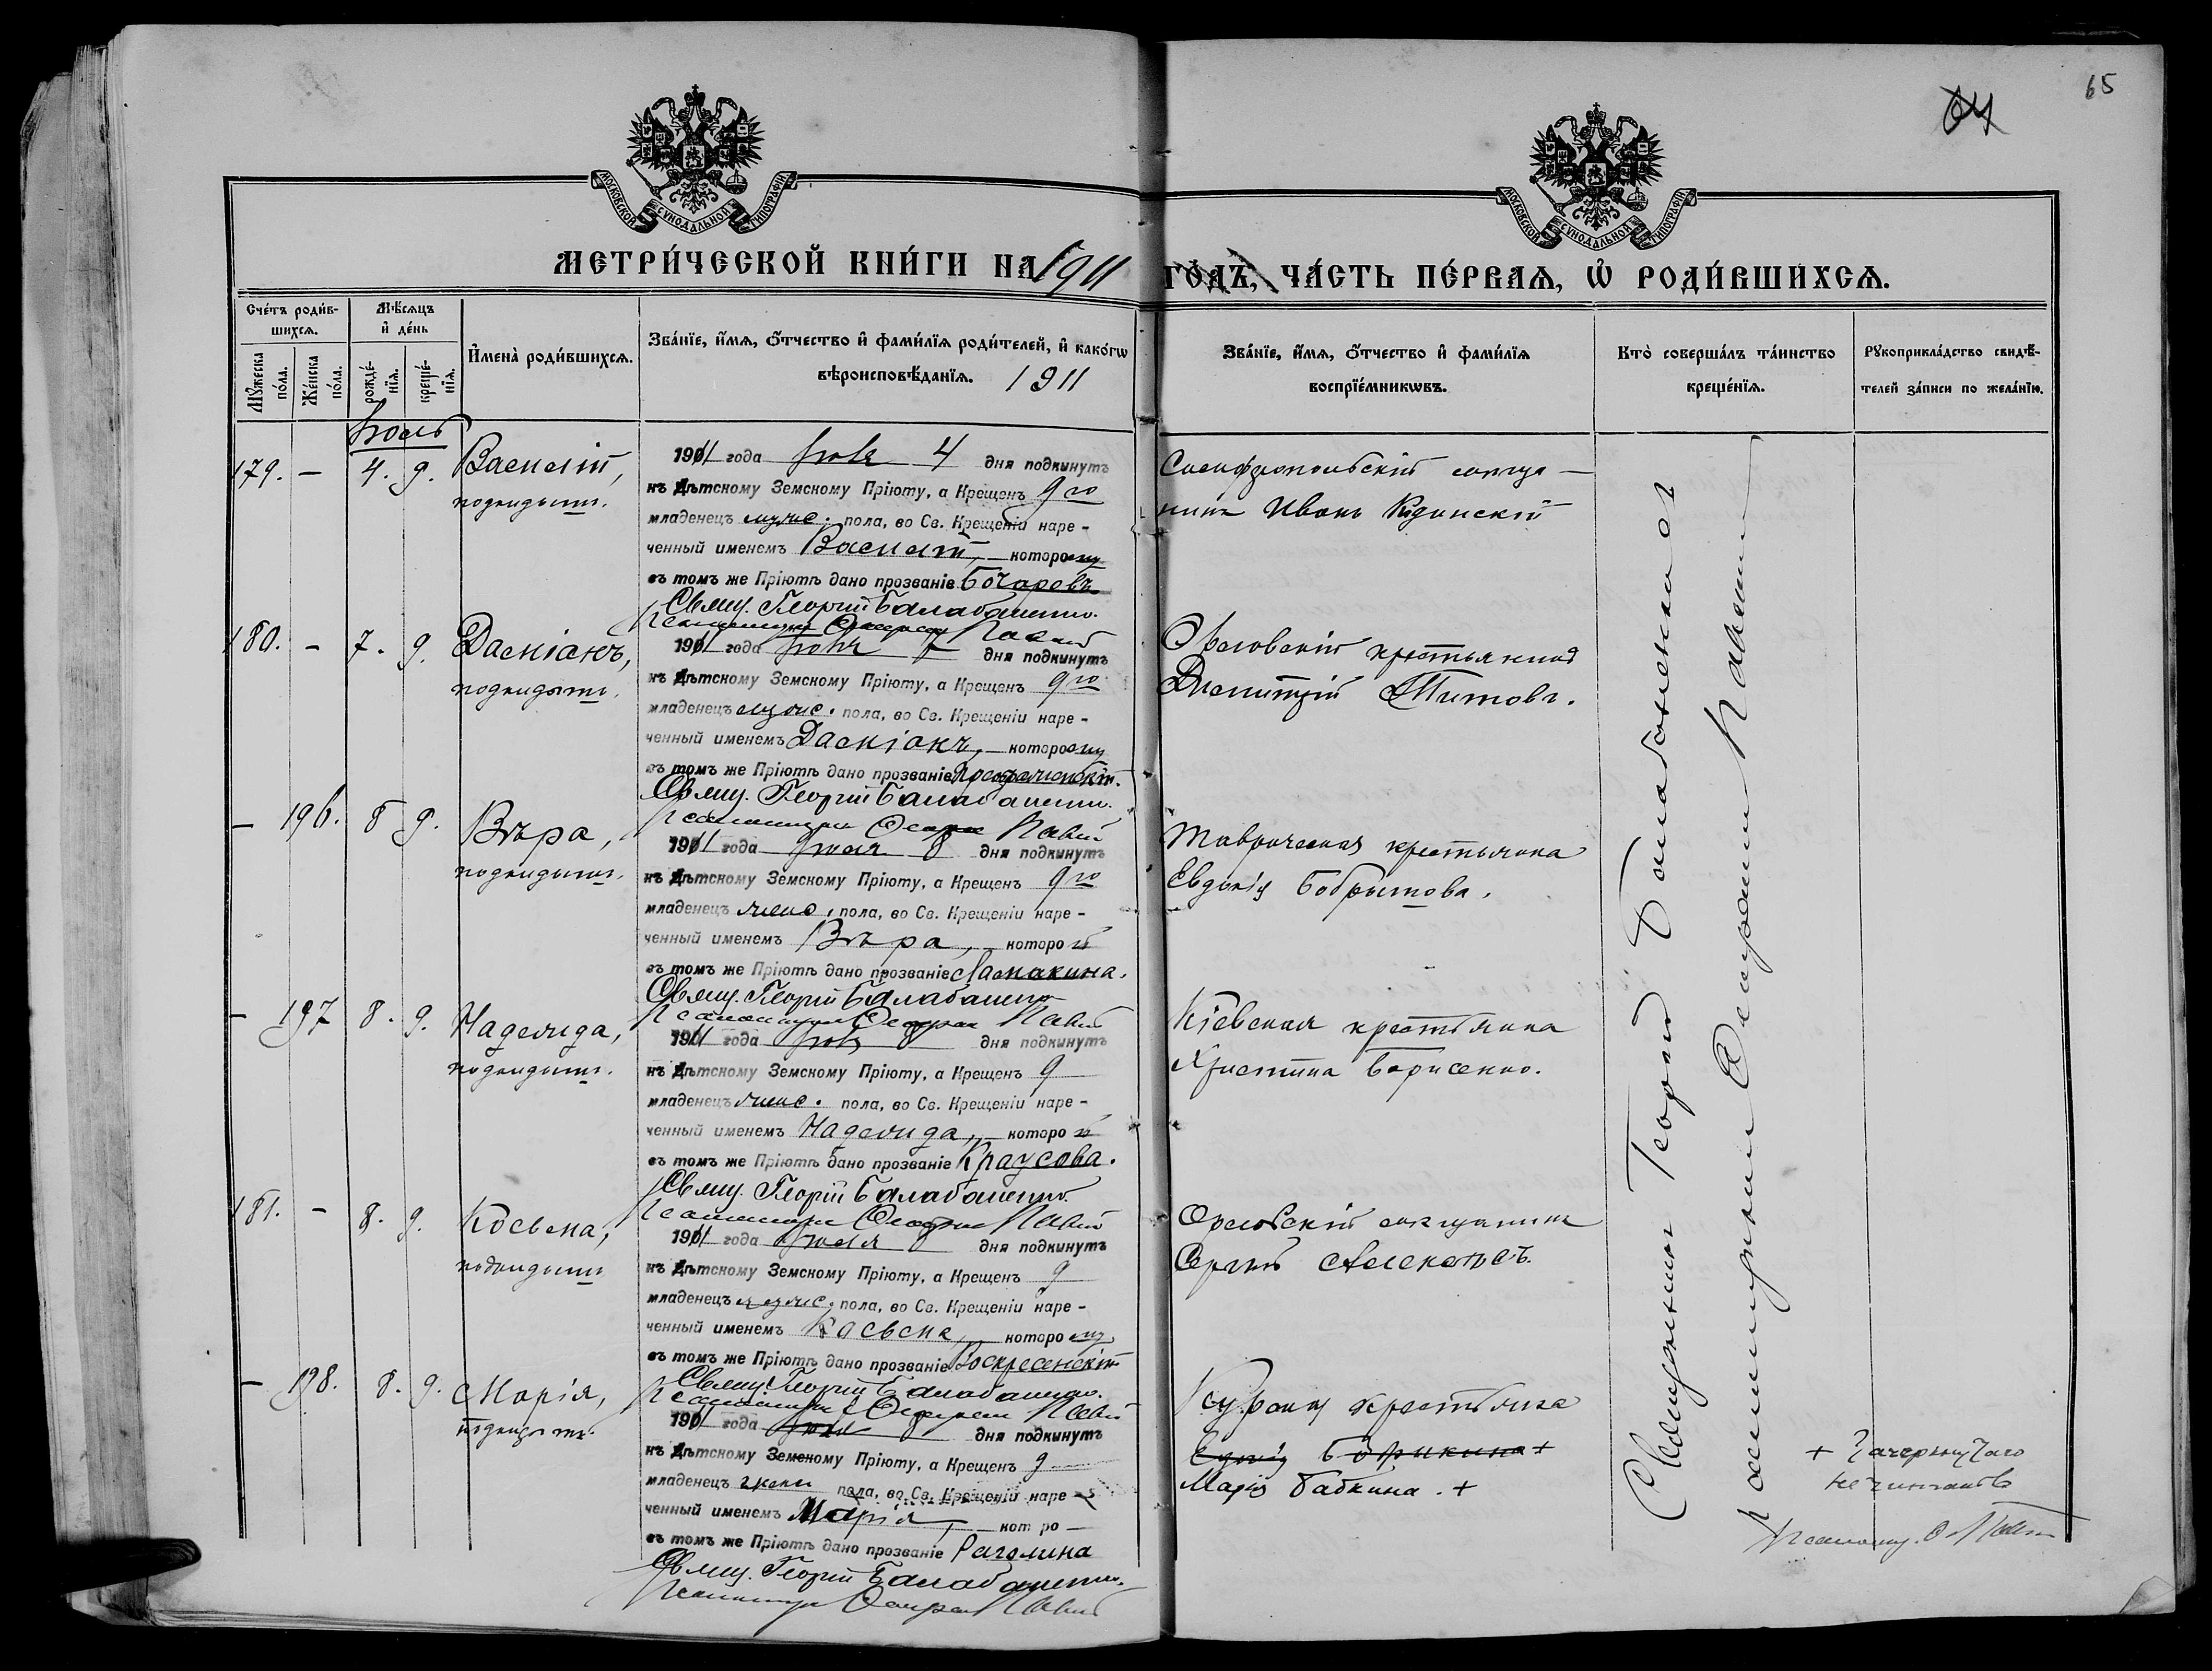 65
64
МОСКОВСКОЙ СѴНОДАЛЬНОЙ ТИПОГРАФІИ
МОСКОВСКОЙ СѴНОДАЛЬНОЙ ТИПОГРАФІИ
МЕТРИ́ЧЕСКОЙ КНИ́ГИ НА 1911 ГО́ДЪ, ЧА́СТЬ ПЕ́РВАѦ, Ѡ҆ РОДИ́ВШИХСѦ.
Сче́тъ роди́в-
шихсѧ.
Мꙋ́жеска по́ла.
Же́нска по́ла.
Мѣ́сѧцъ
и҆ де́нь
рожде́-
нїѧ.
креще́-
нїѧ.
И҆мена̀ роди́вшихсѧ.
Зва́нїе, и҆́мѧ, ѻ҆́тчество и҆ фами́лїѧ роди́телей, и҆ како́гѡ
вѣроисповѣ́данїѧ. 1911
Зва́нїе, и҆́мѧ, ѻ҆́тчество и҆ фами́лїѧ
воспрїе́мникѡвъ.
Кто̀ соверша́лъ та́инство
креще́нїѧ.
Рꙋкоприкла́дство свидѣ́-
телей за́писи по жела́нїю.
Іюль
179. — 4. 9. Василій,
подкидышъ.
1911 года Іюля 4 дня подкинутъ
къ Дѣтскому Земскому Пріюту, а Крещенъ 9го
младенецъ муж. пола, во Св. Крещеніи наре-
ченный именемъ Василій, которому
въ томъ же Пріютѣ дано прозваніе Бочаровъ
Свящ. Георгій Балабаненко.
Псаломщикъ
Симферопольскій мѣща-
нинъ Иванъ
180. — 7. 9. Даміанъ,
подкидышъ.
1911 года Іюля 7 дня подкинутъ
къ Дѣтскому Земскому Пріюту, а Крещенъ 9го
младенецъ муж. пола, во Св. Крещеніи наре-
ченный именемъ Даміанъ, которому
въ томъ же Пріютѣ дано прозваніе
Свящ. Георгій Балабаненко.
Псаломщикъ
Орловскій крестьянинъ
Димитрій Титовъ.
— 196. 8 9. Вѣра,
подкидышъ.
1911 года Іюля 8 дня подкинутъ
къ Дѣтскому Земскому Пріюту, а Крещенъ 9го
младенецъ женс. пола, во Св. Крещеніи наре-
ченный именемъ Вѣра, которой
въ томъ же Пріютѣ дано прозваніе Ламакина.
Свящ. Георгій Балабаненко
Псаломщикъ
Таврическая крестьянка
Евдокія
— 197 8. 9. Надежда,
подкидышъ.
1911 года Іюля 8 дня подкинутъ
къ Дѣтскому Земскому Пріюту, а Крещенъ 9
младенецъ женс. пола, во Св. Крещеніи наре-
ченный именемъ Надежда, которой
въ томъ же Пріютѣ дано прозваніе Краусова.
Свящ. Георгій Балабаненко.
Псаломщикъ
Кіевская крестьянка
Христина Борисенко.
181. — 8. 9. Косьма,
подкидышъ
1911 года Іюля 8 дня подкинутъ
къ Дѣтскому Земскому Пріюту, а Крещенъ 9
младенецъ муж. пола, во Св. Крещеніи наре-
ченный именемъ Косьма, которому
въ томъ же Пріютѣ дано прозваніе Воскресенскій
Свящ. Георгій Балабаненко.
Псаломщикъ
Орловскій мѣщанинъ
Сергій
— 198. 8. 9. Марія,
подкидышъ.
1911 года Іюля 8 дня подкинутъ
къ Дѣтскому Земскому Пріюту, а Крещенъ 9
младенецъ женс пола, во Св. Крещеніи наре-
ченный именемъ Марія, кот ро —
въ томъ же Пріютѣ дано прозваніе Раголина
Свящ. Георгій Балабаненко.
Псаломщикъ
Курская крестьянка
Марія Бабкина. +
Священникъ Георгій Балабаненко
Псаломщикъ
+ Зачеркнутаго
не читать
Псаломщ.